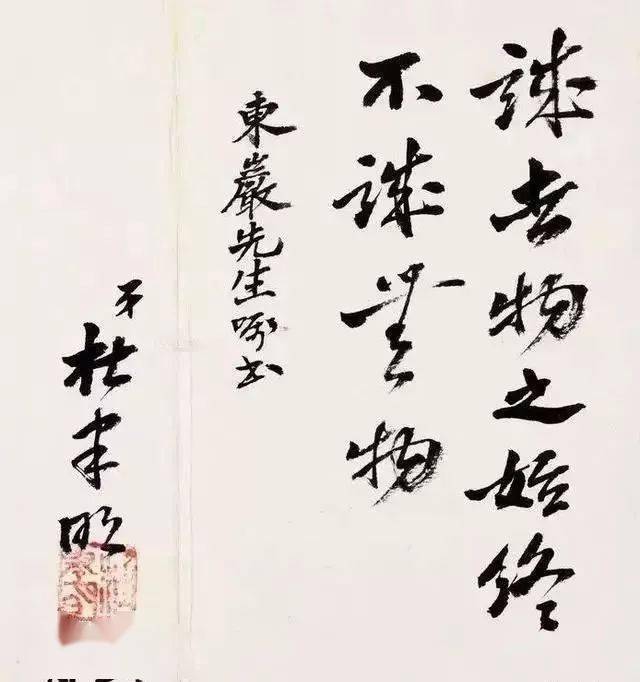 誠者物之始終
不誠無物
東巖先生囑書
弟
杜聿明